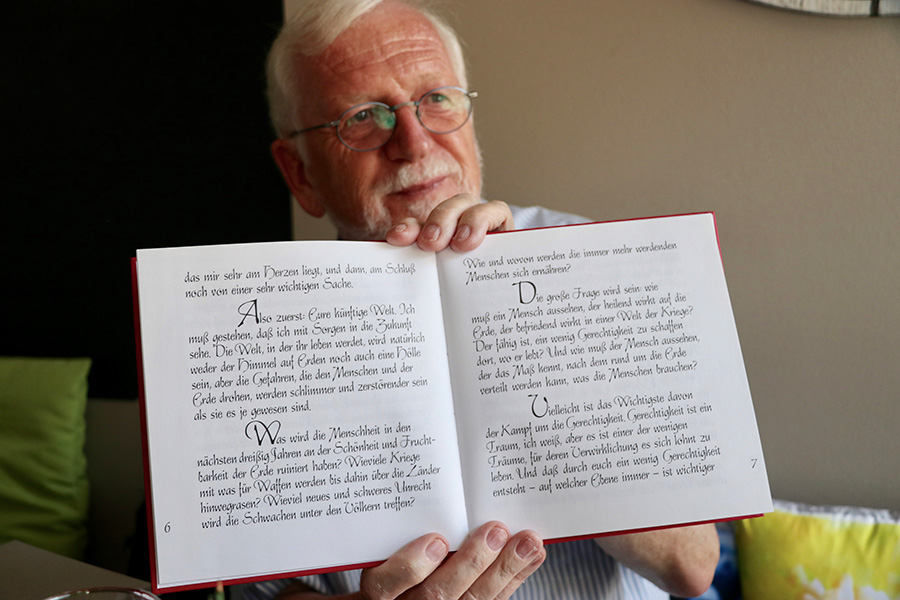 das mir sehr am Herzen liegt, und dann, am Schluß
noch von einer sehr wichtigen Sache.
Also zuerst: Eure künftige Welt. Ich
muß gestehen, daß ich mit Sorgen in die Zukunft
sehe. Die Welt, in der ihr leben werdet, wird natürlich
weder der Himmel auf Erden noch auch eine Hölle
sein, aber die Gefahren, die den Menschen und der
Erde drohen, werden schlimmer und zerstörender sein
als sie es je gewesen sind.
Was wird die Menschheit in den
nächsten dreißig Jahren an der Schönheit und Frucht-
barkeit der Erde ruiniert haben? Wieviele Kriege
mit was für Waffen werden bis dahin über die Länder
hinwegrasen? Wieviel neues und schweres Unrecht
wird die Schwachen unter den Völkern treffen?
6
Wie und wovon werden die immer mehr werdenden
Menschen sich ernähren?
Die große Frage wird sein: wie
muß ein Mensch aussehen, der heilend wirkt auf die
Erde, der befriedend wirkt in einer Welt der Kriege?
Der fähig ist, ein wenig Gerechtigkeit zu schaffen
dort, wo er lebt? Und wie muß der Mensch aussehen,
der das Maß kennt, nach dem rund um die Erde
verteilt werden kann, was die Menschen brauchen?
Vielleicht ist das Wichtigste davon
der Kampf um die Gerechtigkeit. Gerechtigkeit ist ein
Traum, ich weiß, aber es ist einer der wenigen
Träume, für deren Verwirklichung es sich lohnt zu
leben. Und daß durch euch ein wenig Gerechtigkeit
entsteht – auf welcher Ebene immer – ist wichtiger
7